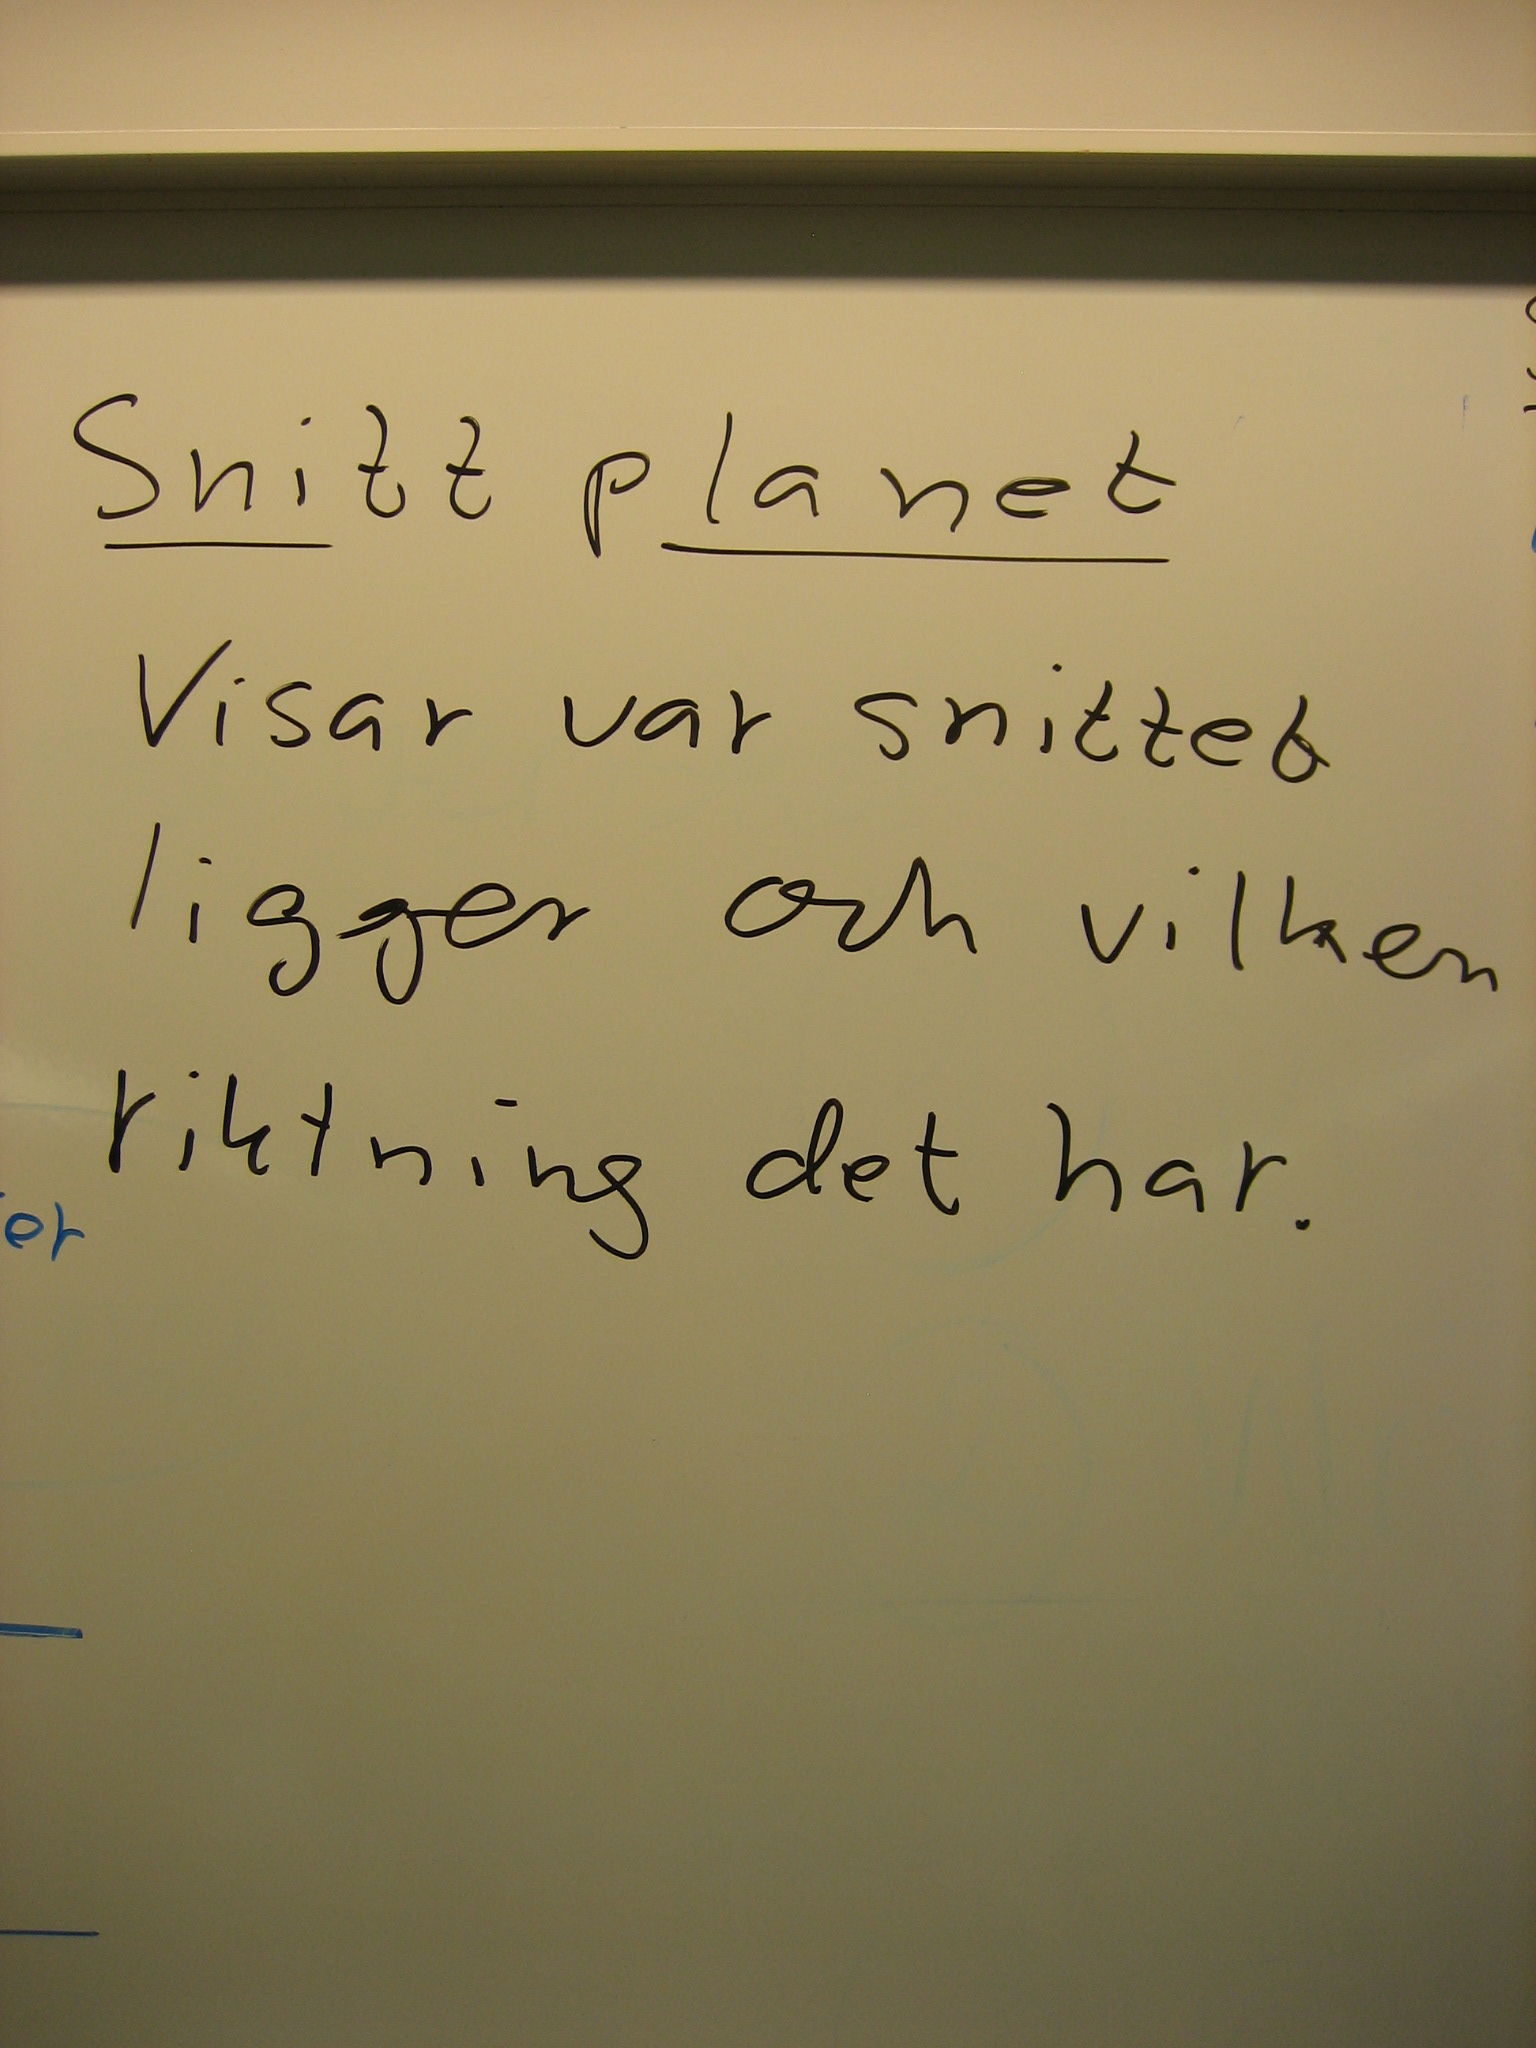 Snitt planet
Visar var snittet
ligger och vilken
riktning det har.
er